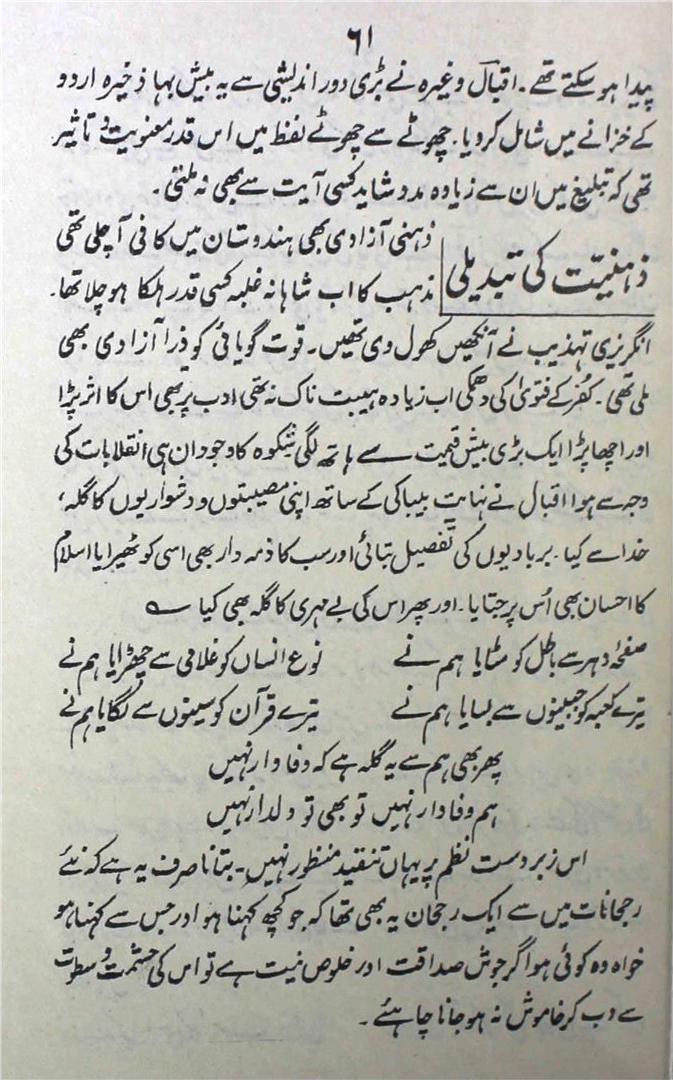 ۶۱
پیدا ہو سکتے تھے۔ اقبالؔ وغیرہ نے بڑی دور اندیشی سے یہ بیش بہا ذخیرہ اردو
کے خزانے میں شامل کر دیا۔ چھوٹے سے چھوٹے لفظ میں اس قدر معنویت و تاثیر
تھی کہ تبلیغ میں ان سے زیادہ مدد شاید کسی آیت سے بھی نہ ملتی۔
ذہنیت کی تبدیلی
ذہنی آزادی بھی ہندوستان میں کافی آ چلی تھی
مذہب کا اب شاہانہ غلبہ کسی قدر ہلکا ہو چلا تھا۔
انگریزی تہذیب نے آنکھیں کھول دی تھیں۔ قوت گویائی کو ذرا آزادی بھی
ملی تھی۔ کفر کے فتویٰ کی دھمکی اب زیادہ ہیبت ناک نہ تھی ادب پر بھی اس کا اثر پڑا
اور اچھا پڑا ایک بڑی بیش قیمت سے ہاتھ لگی شکوہ کا وجود ان ہی انقلابات کی
وجہ سے ہوا اقبال نے نہایت بیباکی کے ساتھ اپنی مصیبتوں و دشواریوں کا گلہ،
خدا سے کیا۔ بربادیوں کی تفصیل بتائی اور سب کا ذمہ دار بھی اسی کو ٹھیرایا اسلام
کا احسان بھی اُس پر جتایا۔ اور پھر اس کی بے مہری کا گلہ بھی کیا ؎
صفحۂ دہر سے باطل کو مٹایا ہم نے نوع انساں کو غلامی سے چھڑایا ہم نے
تیرے کعبہ کو جبینوں سے بسایا ہم نے تیرے قرآن کو سینوں سے لگایا ہم نے
پھر بھی ہم سے یہ گلہ ہے کہ وفادار نہیں
ہم وفادار نہیں تو بھی تو دلدار نہیں
اس زبردست نظم پر یہاں تنقید منظور نہیں۔ بتانا صرف یہ ہے کہ نئے
رجحانات میں سے ایک رجحان یہ بھی تھا کہ جو کچھ کہنا ہو اور جس سے کہنا ہو
خواہ وہ کوئی ہو اگر جوش صداقت اور خلوص نیت ہے تو اس کی حشمت و سطوت
سے دب کر خاموش نہ ہو جانا چاہئے۔